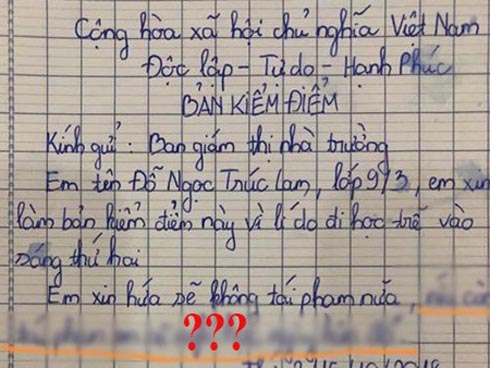 Cộng hòa xã hội chủ nghĩa Việt Nam
Độc lập - Tự do - Hạnh Phúc
BẢN KIỂM ĐIỂM
Kính gửi : Ban giám thị nhà trường
Em tên Đỗ Ngọc Trúc Lam, lớp 9/3, em xin
làm bản kiểm điểm này vì lí do đi học trễ vào
sáng thứ hai
Em xin hứa sẽ không tái phạm nữa,
???